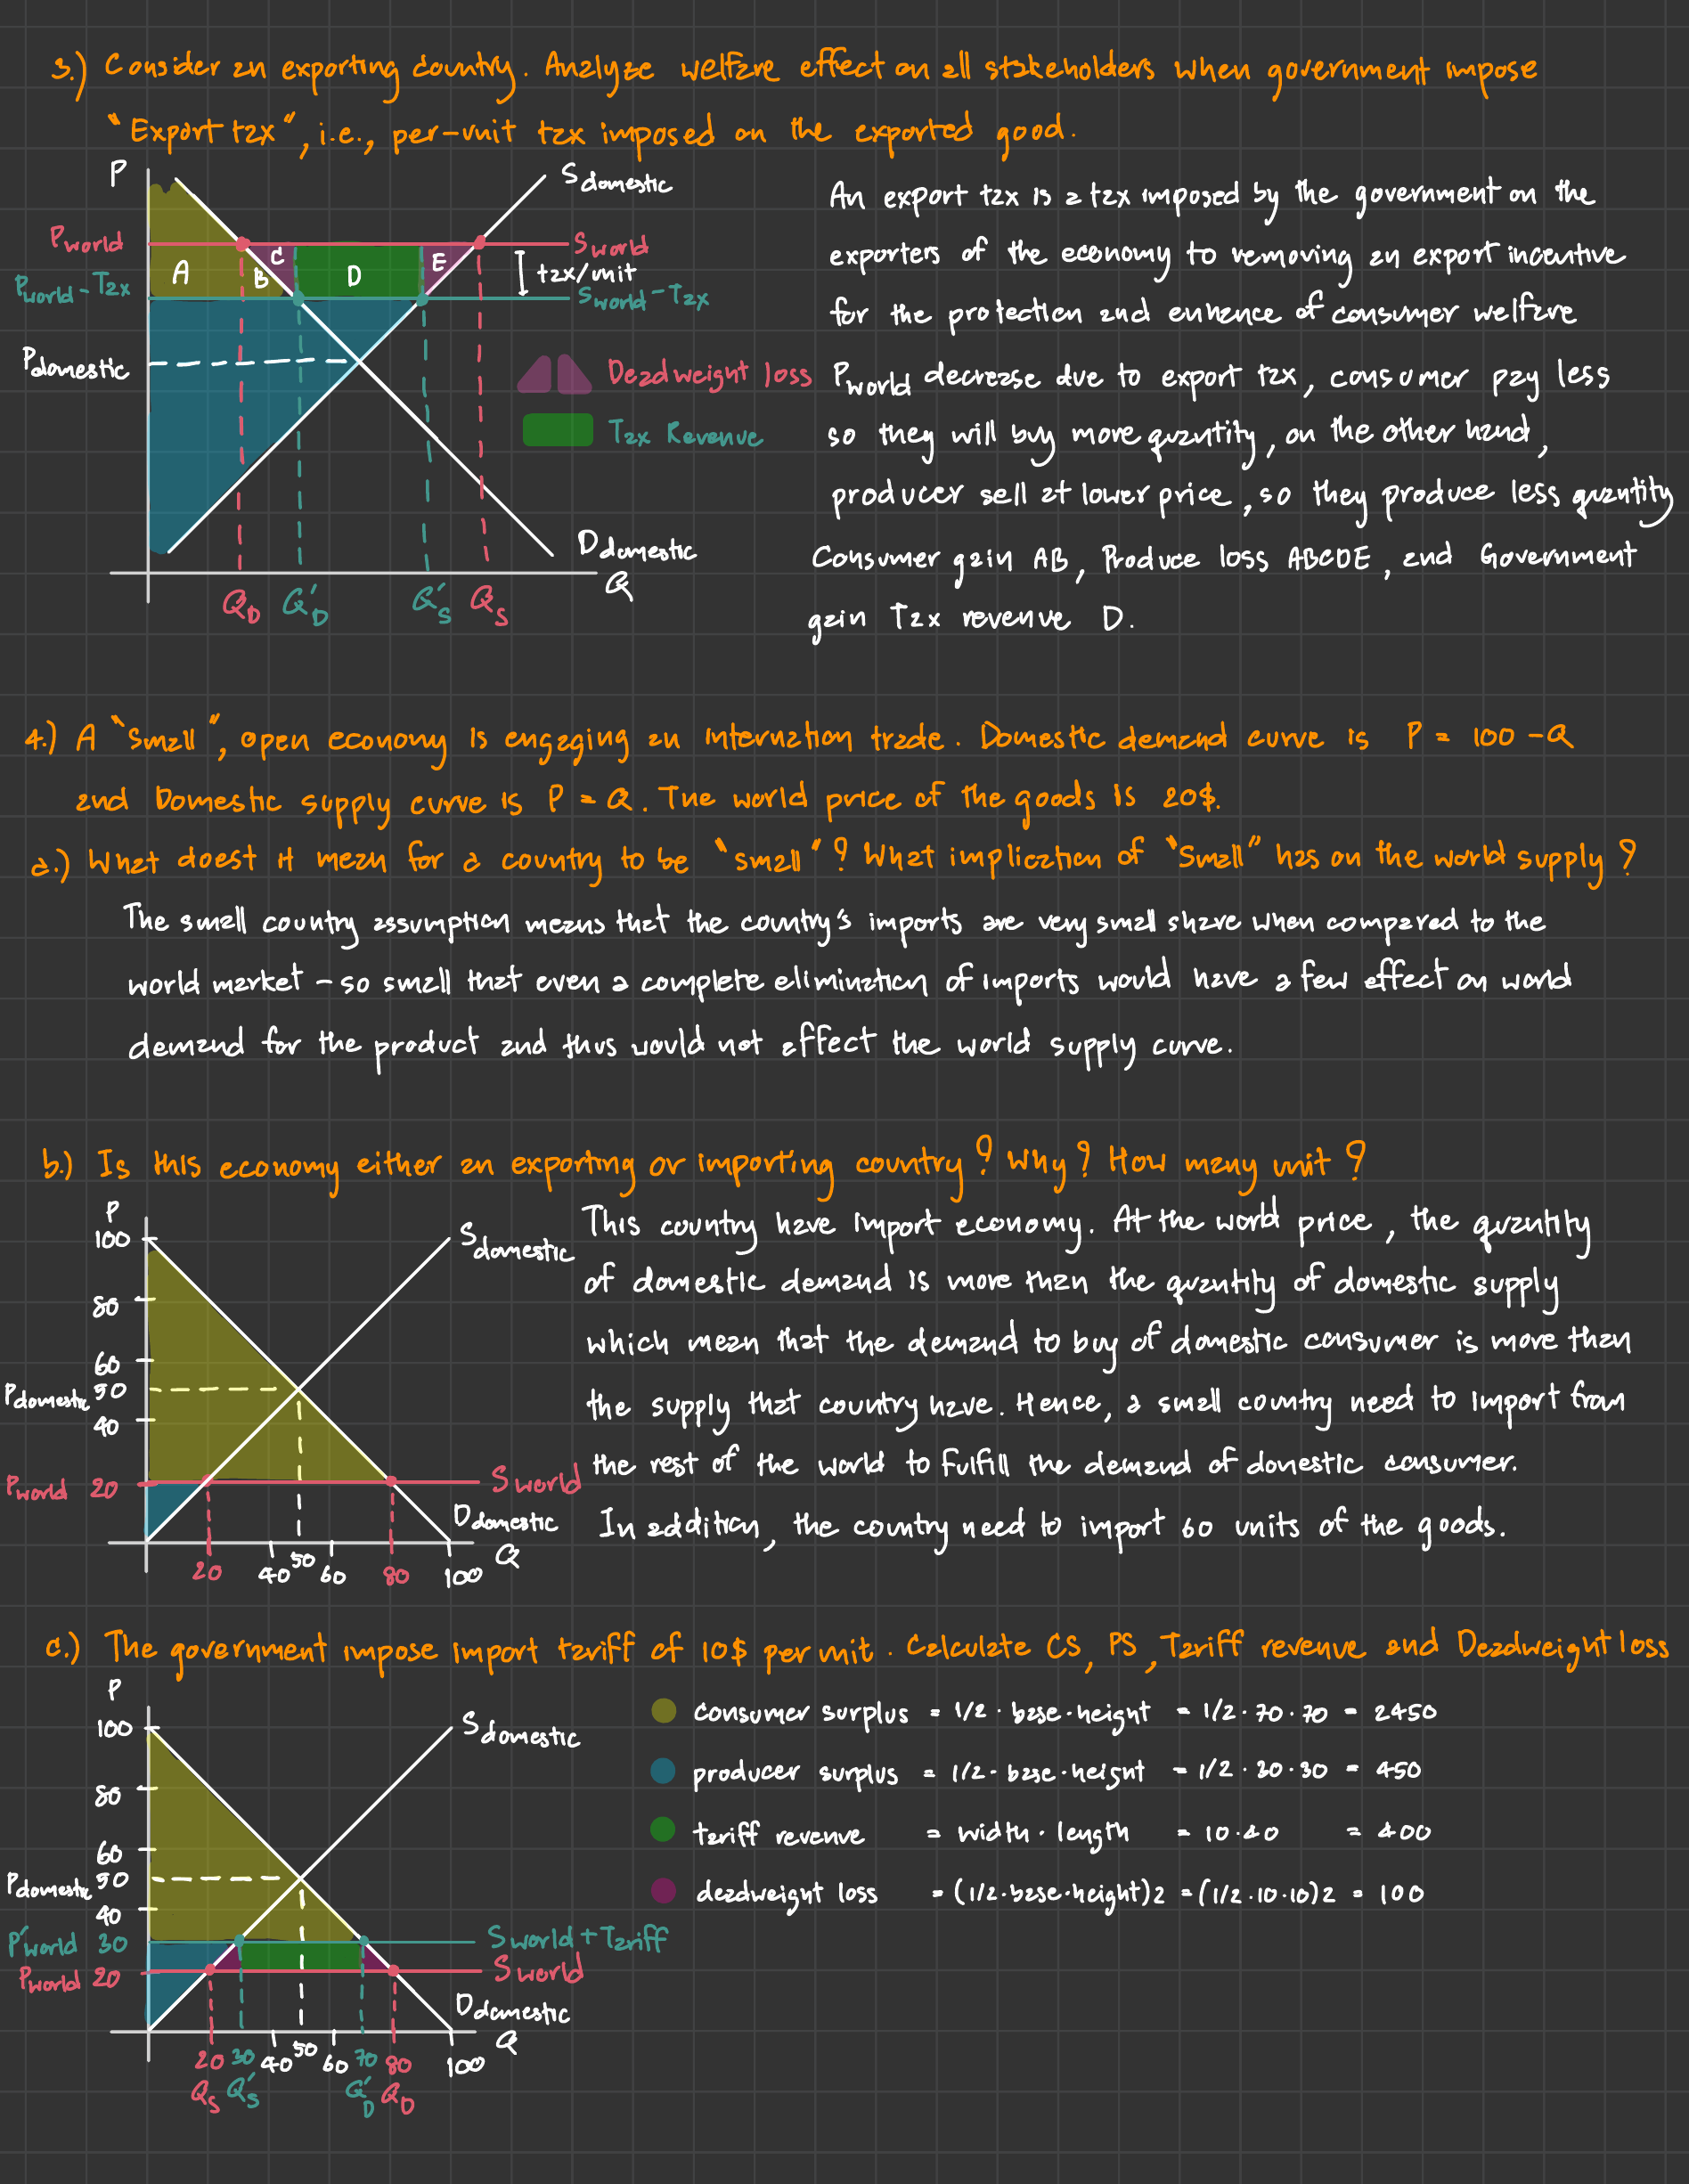 3.) Consider an exporting country. Analyze welfare effect on all stakeholders when government impose
"Export tax", i.e., per-unit tax imposed on the exported good.
P
Sdomestic
Pworld
Sworld
A
B
C
D
E
tax/unit
Pworld-Tax
Sworld-Tax
Pdomestic
Deadweight loss
Tax Revenue
Ddomestic
Q
QD
Q'D
Q's
Qs
An export tax is a tax imposed by the government on the
exporters of the economy to removing an export incentive
for the protection and enhance of consumer welfare
Pworld decrease due to export tax, consumer pay less
so they will buy more quantity, on the other hand,
producer sell at lower price, so they produce less quantity
Consumer gain AB, Produce loss ABCDE, and Government
gain Tax revenue D.
4.) A "Small", open economy is engaging an internation trade. Domestic demand curve is P = 100 - Q
and Domestic supply curve is P = Q. The world price of the goods is 20$.
a.) What doest it mean for a country to be "small"? What implication of "Small" has on the world supply?
The small country assumption means that the country's imports are very small share when compared to the
world market - so small that even a complete elimination of imports would have a few effect on world
demand for the product and thus would not affect the world supply curve.
b.) Is this economy either an exporting or importing country? Why? How many unit?
P
100
80
60
Pdomestic 50
40
Pworld 20
Sdomestic
Sworld
Ddomestic
Q
20
40
50
60
80
100
This country have import economy. At the world price, the quantity
of domestic demand is more than the quantity of domestic supply
which mean that the demand to buy of domestic consumer is more than
the supply that country have. Hence, a small country need to import from
the rest of the world to fulfill the demand of domestic consumer.
In addition, the country need to import 60 units of the goods.
c.) The government impose import tariff of 10$ per unit. Calculate CS, PS, Tariff revenue and Deadweight loss
P
100
80
60
Pdomestic 50
40
P'world 30
Pworld 20
Sdomestic
Sworld+Tariff
Sworld
Ddomestic
Q
20
30
40
50
60
70
80
100
Qs
Q's
Q'D
QD
consumer surplus = 1/2 · base·height = 1/2 · 70 · 70 = 2450
producer surplus = 1/2 · base·height = 1/2 · 30 · 30 = 450
tariff revenue = width · length = 10 · 40 = 400
deadweight loss = (1/2·base·height)2 = (1/2 · 10 · 10)2 = 100